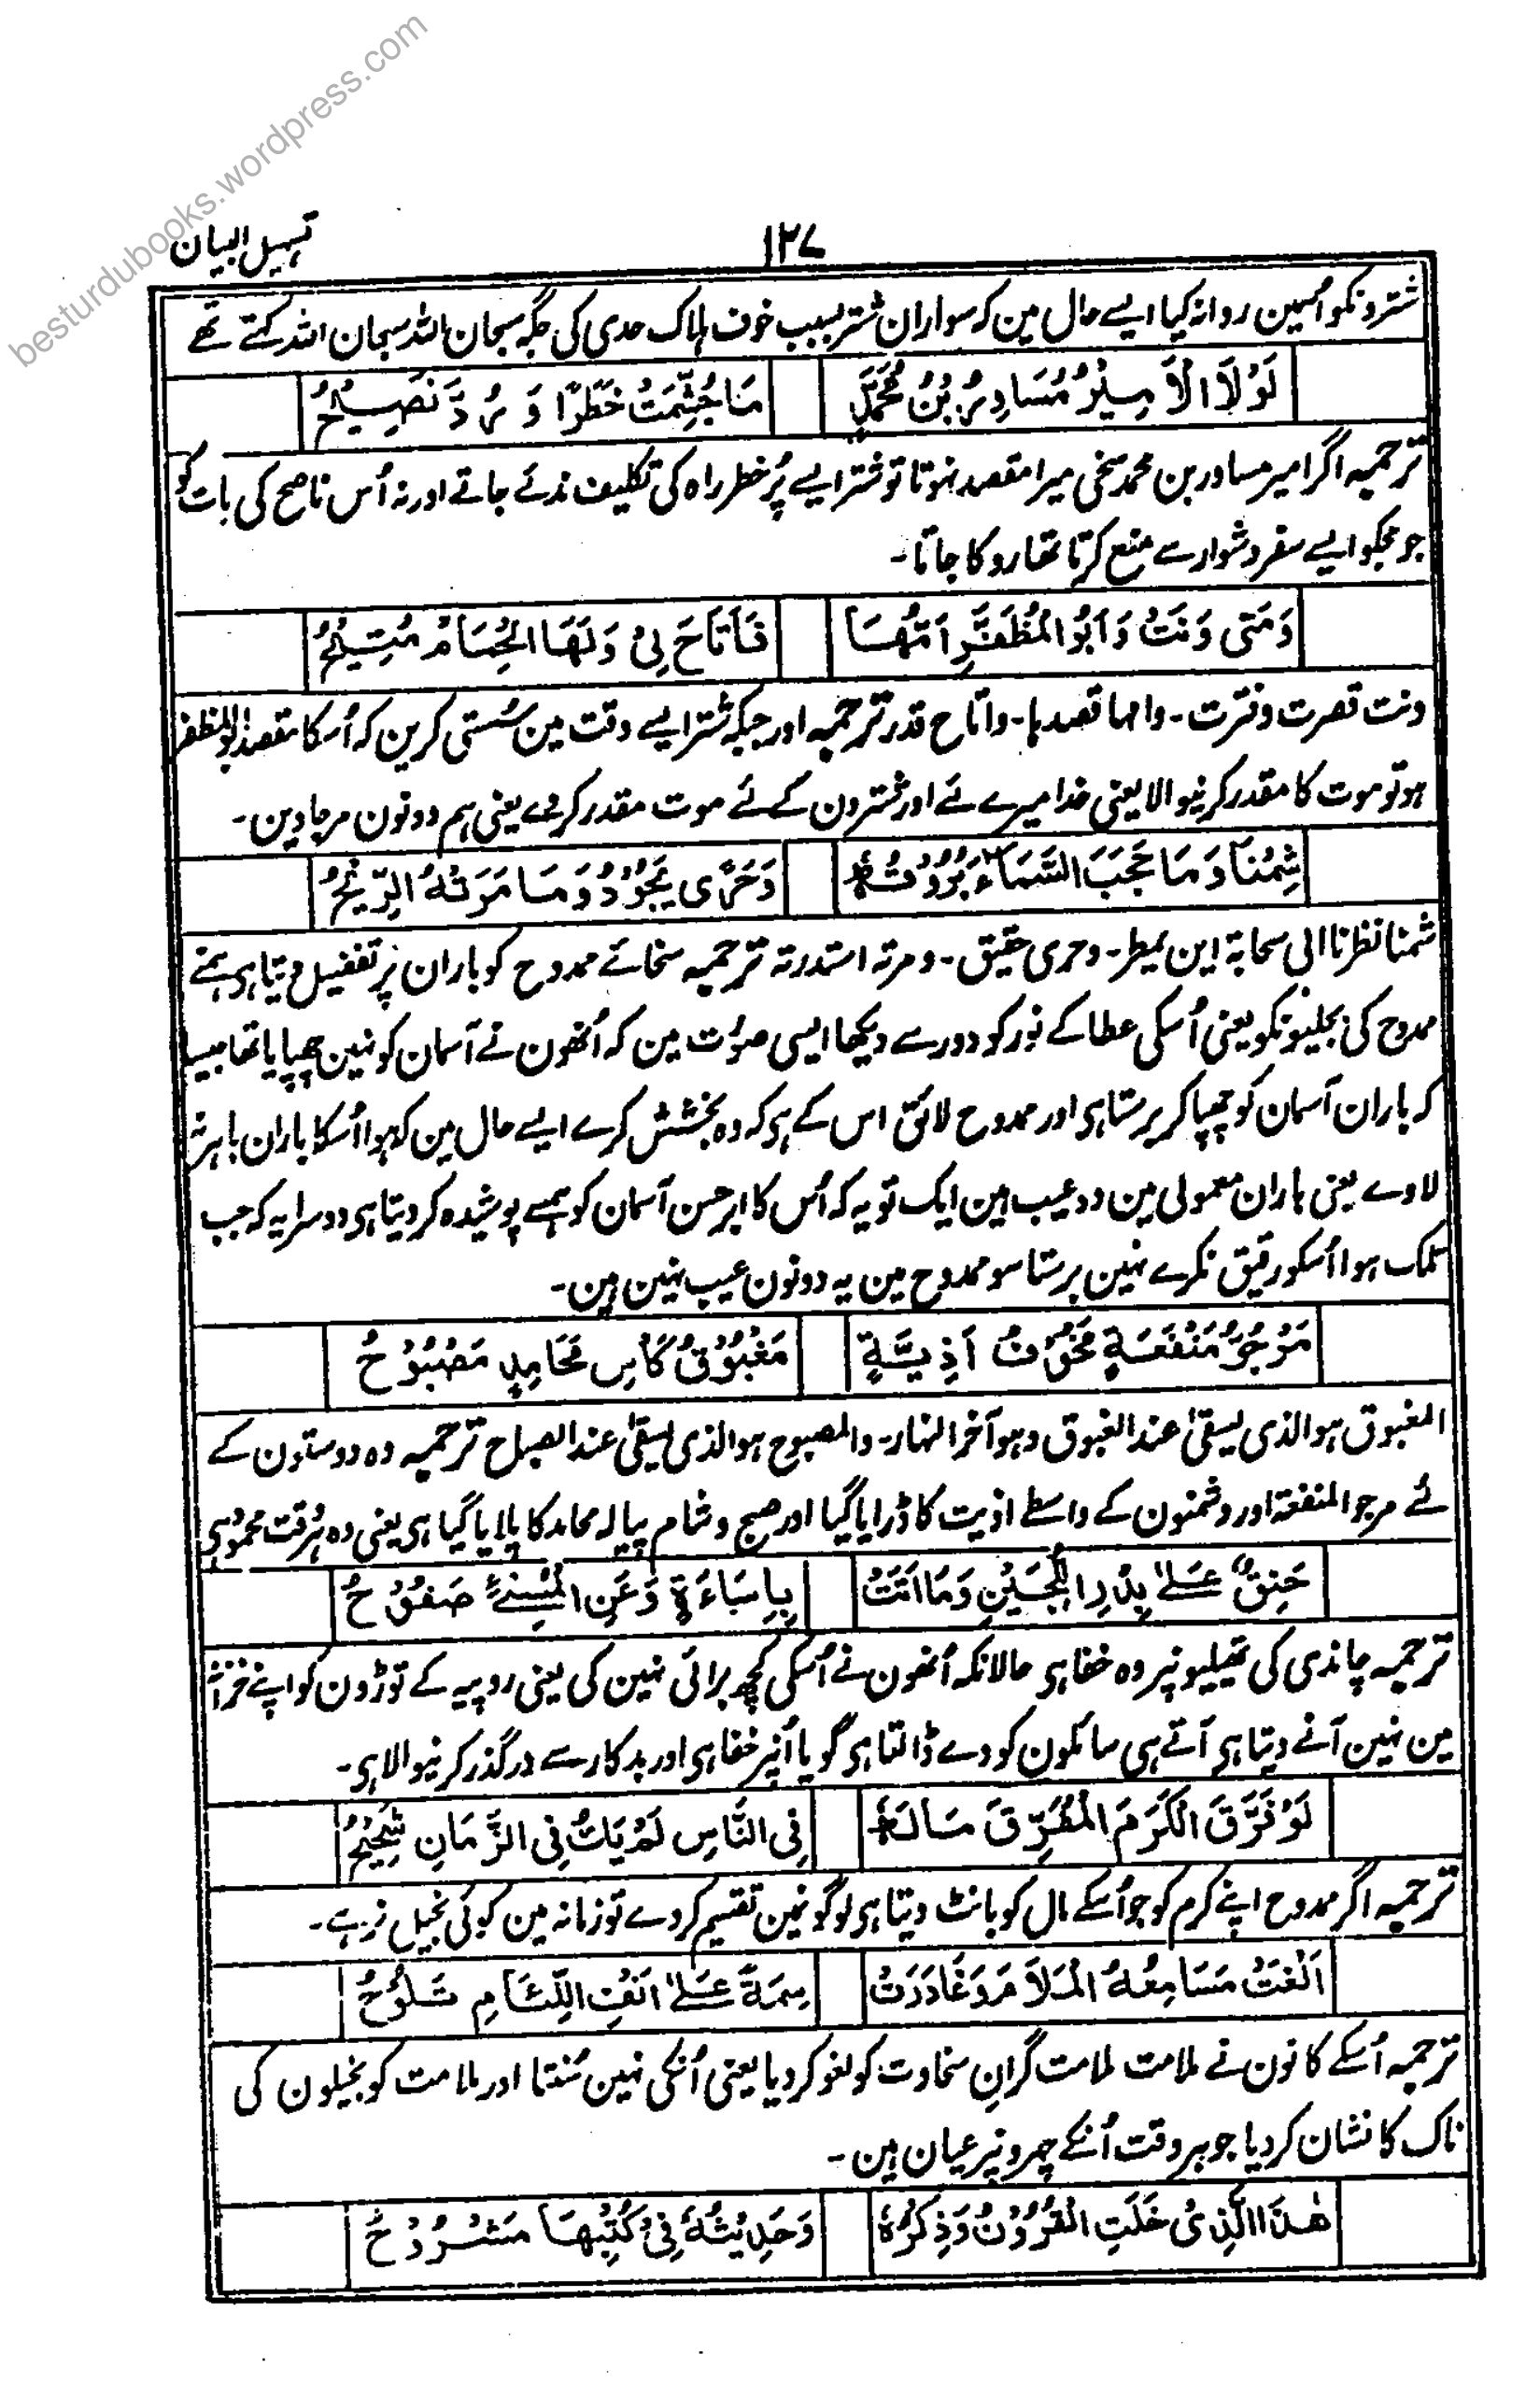 besturdubooks.wordpress.com
تسہیل البیان
۱۲۷
شترونکو اسین روانہ کیا ایسے حال مین کہ سواران شتر بسبب خوف ہلاک حدی کی جگہ سبحان اللہ سبحان اللہ کہتے تھے
لَوْلَا الْاَمِیْرُ مُسَاوِرُ بْنُ مُحَمَّدٍ مَا جُشِّمَتْ خَطَرًا وَ رُدَّ نَصِیْحُ
ترجمہ اگر امیر مساور بن محمد سخی میرا مقصد نہوتا تو شتر ایسے پُر خطر راہ کی تکلیف ندئے جاتے اور نہ اُس ناصح کی بات کو
جو مجکو ایسے سفر دشوار سے منع کرتا تھا روکا جاتا۔
وَمَتٰی وَنَتْ وَاَبُو الْمُظَفَّرِ اَمُّهَا فَاَتَاحَ لِیْ وَلَهَا الْحِمَامَ مُتِیْحُ
ونت قصرت وفترت۔ وامہا قصدہا۔ واتاح قدر ترجمہ اور جبکہ شتر ایسے وقت مین سُستی کرین کہ اُسکا مقصد ابو المظفر
ہو تو موت کا مقدر کرنیوالا یعنی خدا میرے لئے اور شترون کے لئے موت مقدر کرے یعنی ہم دونون مر جاوین۔
شِمْنَا وَمَا حَجَبَ السَّمَاءَ بُرُوْقُهٗ وَحَرًی یَجُوْدُ وَمَا مَرَتْهُ الرِّیْحُ
شمنا نظرنا الی سحابۃ این یمطر۔ وحری حقیق۔ ومرتہ استدرتہ ترجمہ سخائے ممدوح کو باران پر تفضیل دیتا ہی ہمنے
ممدوح کی بجلیونکو یعنی اُسکی عطا کے نور کو دور سے دیکھا ایسی صورت مین کہ اُنھون نے آسمان کو نہین چھپایا تھا جیسا
کہ باران آسمان کو چھپا کر برستا ہی اور ممدوح لائق اس کے ہی کہ وہ بخشش کرے ایسے حال مین کہ ہوا اُسکا باران باہر نہ
لاوے یعنی باران معمولی مین دو عیب ہین ایک تو یہ کہ اُس کا ابر حسن آسمان کو ہمسے پوشیدہ کر دیتا ہی دوسرا یہ کہ جب
تلک ہوا اُسکو رقیق نکرے نہین برستا سو ممدوح مین یہ دونون عیب نہین ہین۔
مَرْجُوُّ مَنْفَعَةٍ مَخُوْفُ اَذِیَّةٍ مَغْبُوْقُ کَاْسِ مَحَامِدٍ مَصْبُوْحُ
المغبوق ہو الذی یسقیٰ عند الغبوق وہو آخر النہار۔ والمصبوح ہو الذی یسقیٰ عند الصباح ترجمہ وہ دوستون کے
لئے مرجو المنفعۃ اور دشمنون کے واسطے اذیت کا ڈرایا گیا اور صبح و شام پیالہ محامد کا پلایا گیا ہی یعنی وہ ہر وقت محمود ہی
حَنِقٌ عَلٰی بِدَرِ اللُّجَیْنِ وَمَا اَتَتْ بِاِسَاءَةٍ وَعَنِ الْمُسِیْءِ صَفُوْحُ
ترجمہ چاندی کی تھیلیونپر وہ خفا ہی حالانکہ اُنھون نے اُسکی کچھ برائی نہین کی یعنی روپیہ کے توڑون کو اپنے خزانہ
مین نہین آنے دیتا ہی آتے ہی سائلون کو دے ڈالتا ہی گویا اُنپر خفا ہی اور بدکار سے درگذر کرنیوالا ہی۔
لَوْ فَرَّقَ الْکَرَمَ الْمُفَرِّقَ مَالَهٗ فِی النَّاسِ لَمْ یَكُ فِی الزَّمَانِ شَحِیْحُ
ترجمہ اگر ممدوح اپنے کرم کو جو اُسکے مال کو بانٹ دیتا ہی لوگونمین تقسیم کر دے تو زمانہ مین کوئی بخیل نرہے۔
اَلْغَتْ مَسَامِعُهُ الْمَلَامَ وَغَادَرَتْ سِمَةً عَلٰی اَنْفِ اللِّئَامِ تَلُوْحُ
ترجمہ اُسکے کانون نے ملامت ملامت گران سخاوت کو لغو کر دیا یعنی اُنکی نہین سُنتا اور ملامت کو بخیلون کی
ناک کا نشان کر دیا جو ہر وقت اُنکے چہرونپر عیان ہین۔
هٰذَا الَّذِیْ خَلَتِ الْقُرُوْنُ وَذِکْرُهٗ وَحَدِیْثُهٗ فِیْ کُتُبِهَا مَشْرُوْحُ